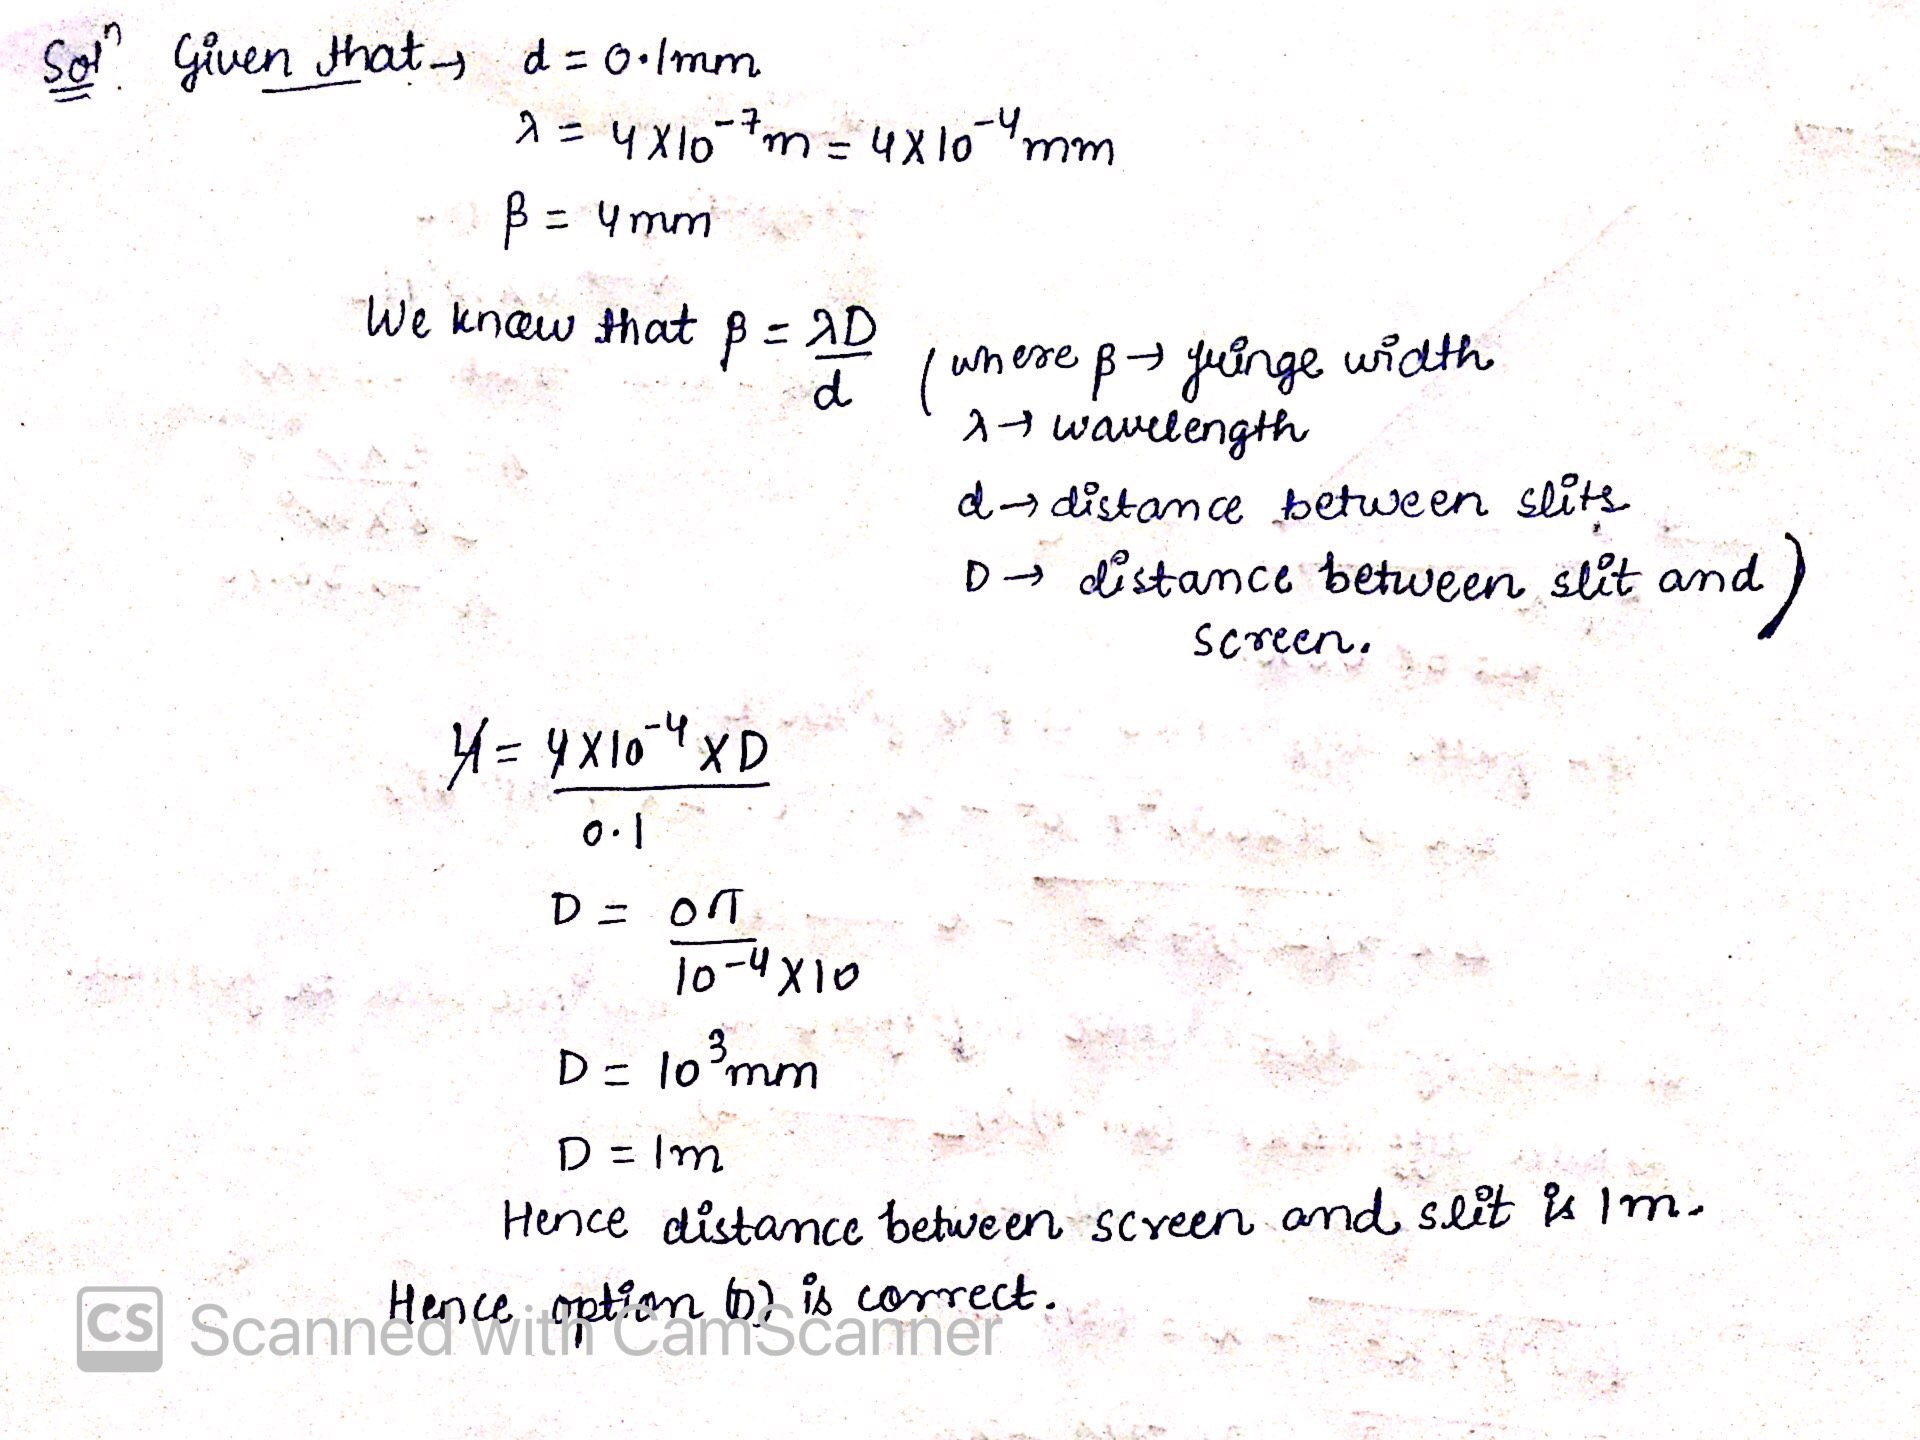 Solⁿ. Given that → d = 0.1mm
λ = 4×10⁻⁷m = 4×10⁻⁴mm
β = 4mm
We know that β = λD/d (where β → fringe width
λ → wavelength
d → distance between slits
D → distance between slit and)
screen.
4 = 4×10⁻⁴×D
0.1
D = 01
10⁻⁴×10
D = 10³mm
D = 1m
Hence distance between screen and slit is 1m.
Hence option (D) is correct.
CS Scanned with CamScanner